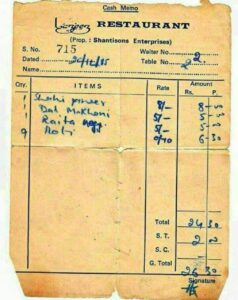 Cash Memo
Lazeez RESTAURANT
(Prop. : Shantisons Enterprises)
S. No. 715 Waiter No. 22
Dated 20/12/85 Table No. 22
Qty. ITEMS Rate Amount
Rs. P
1 Shahi paneer 8/- 8-00
1 Dal Makhani 5/- 5-00
1 Raita 5/- 5-00
9 Roti 0/70 6-30
Total 24 30
S. T. 2
S. C.
G. Total 26 30
Signature